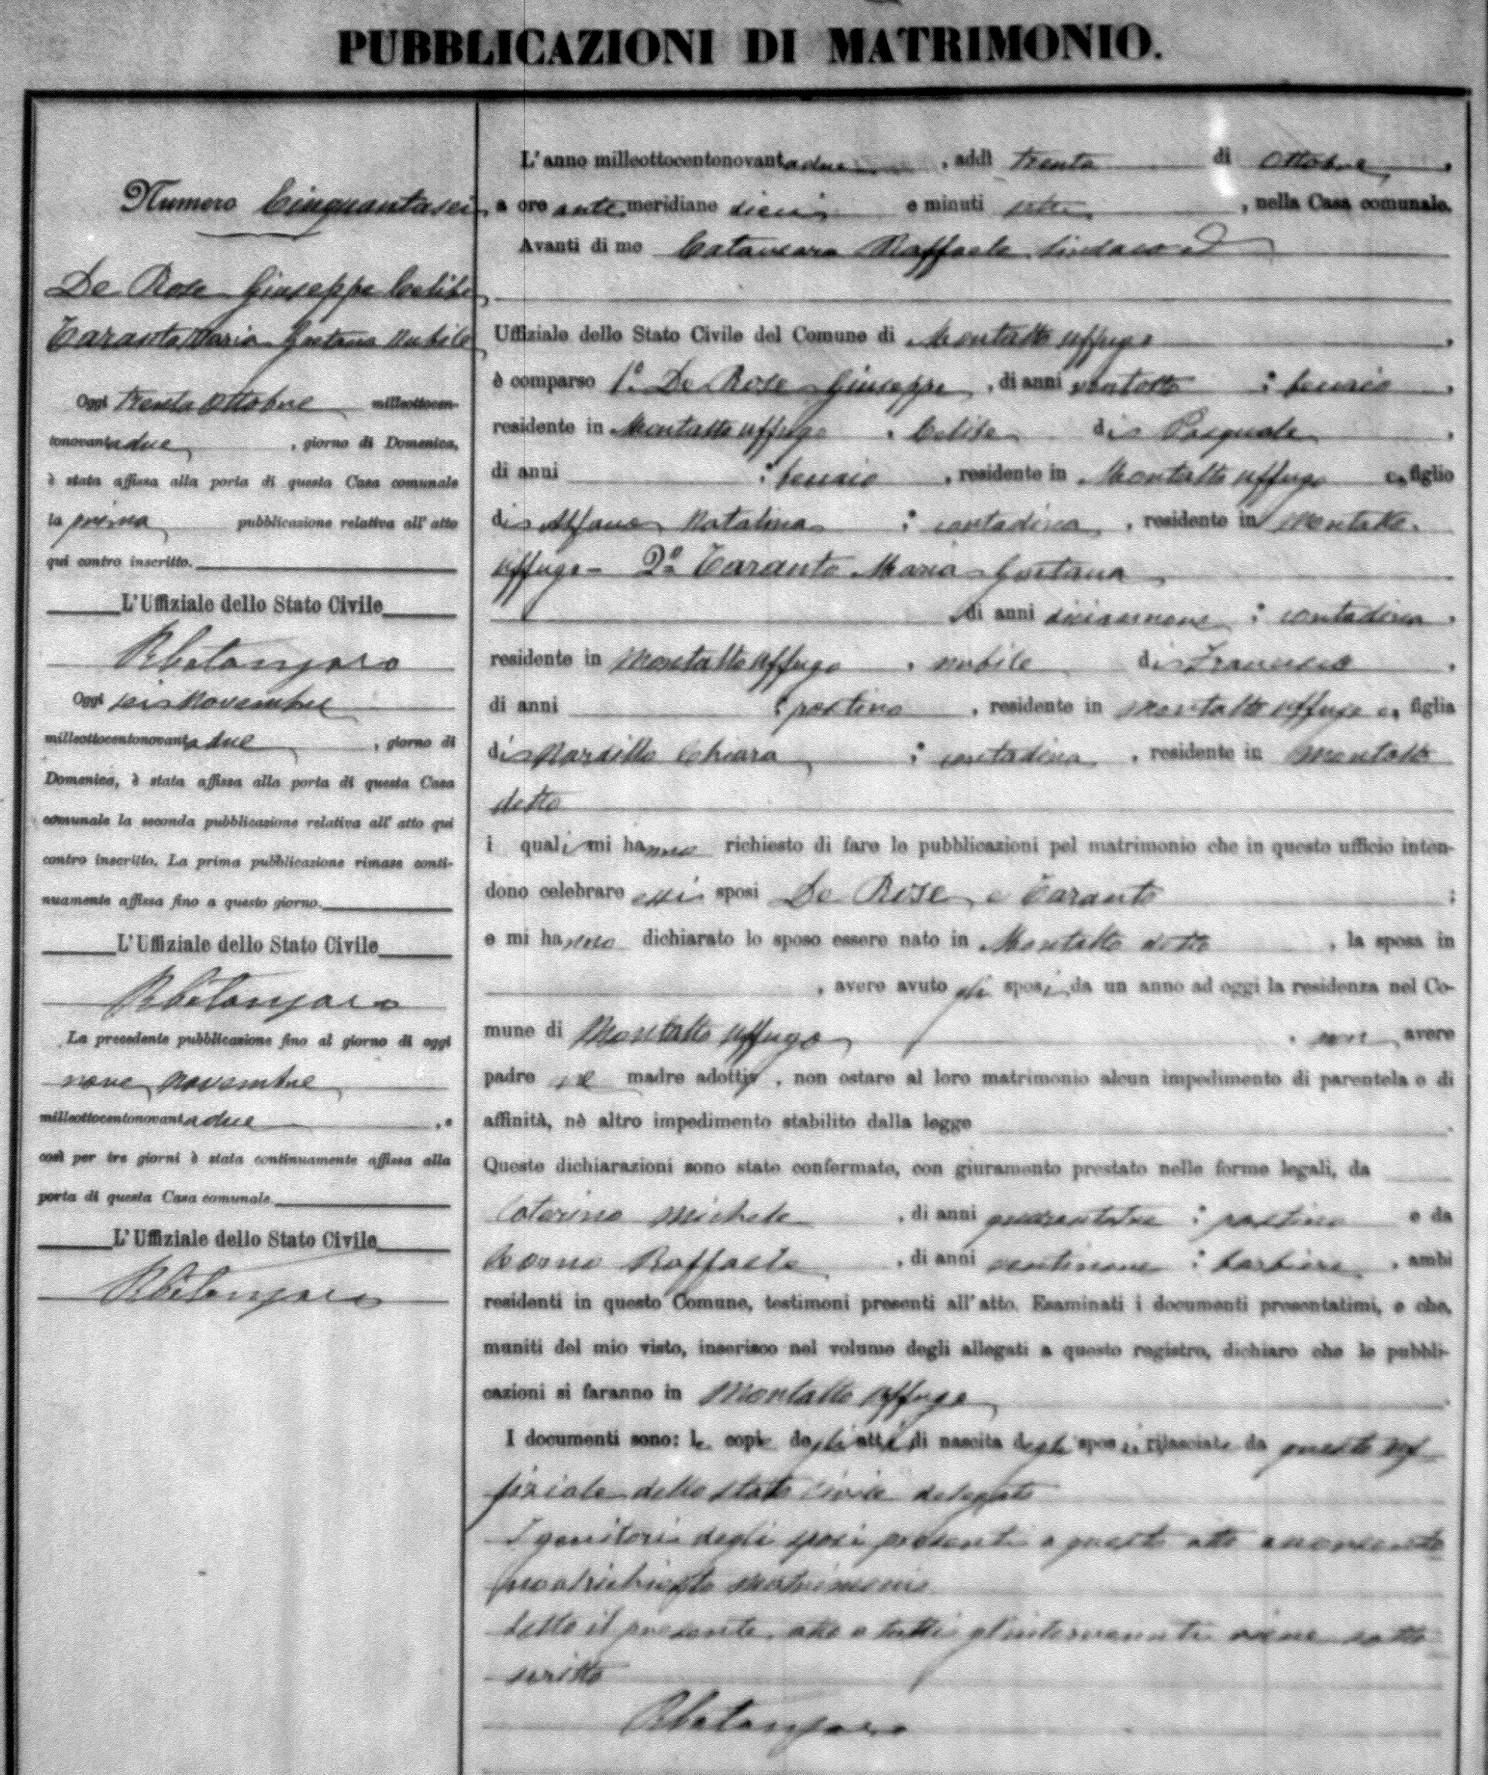 PUBBLICAZIONI DI MATRIMONIO.
Numero Cinquantasei
De Rose Giuseppe Celibe
Taranto Maria Gaetana Nubile
Oggi trenta Ottobre milleottocen-
tonovantadue, giorno di Domenica,
è stata affissa alla porta di questa Casa comunale
la prima pubblicazione relativa all'atto
qui contro inscritto.
L'Uffiziale dello Stato Civile
RCatanzaro
Oggi sei Novembre
milleottocentonovantadue, giorno di
Domenica, è stata affissa alla porta di questa Casa
comunale la seconda pubblicazione relativa all'atto qui
contro inscritto. La prima pubblicazione rimase conti-
nuamente affissa fino a questo giorno.
L'Uffiziale dello Stato Civile
RCatanzaro
La precedente pubblicazione fino al giorno di oggi
nove Novembre
milleottocentonovantadue, e
così per tre giorni è stata continuamente affissa alla
porta di questa Casa comunale.
L'Uffiziale dello Stato Civile
RCatanzaro
L'anno milleottocentonovantadue, addì trenta di Ottobre,
a ore antemeridiane dieci e minuti sette, nella Casa comunale.
Avanti di me Catanzaro Raffaele Sindaco ed
Uffiziale dello Stato Civile del Comune di Montalto Uffugo,
è comparso 1º De Rose Giuseppe, di anni ventotto,
residente in Montalto Uffugo, Celibe di Pasquale,
di anni , residente in Montalto Uffugo e figlio
di Natalina contadina, residente in Montalto
Uffugo - 2ª Taranto Maria Gaetana
di anni diciannove: contadina,
residente in Montalto Uffugo, nubile di Francesco,
di anni : postino, residente in Montalto Uffugo e, figlia
di Nardillo Chiara: contadina, residente in Montalto
detto
i quali mi hanno richiesto di fare le pubblicazioni pel matrimonio che in questo ufficio inten-
dono celebrare essi sposi De Rose e Taranto;
e mi hanno dichiarato lo sposo essere nato in Montalto detto, la sposa in
, avere avuto gli sposi da un anno ad oggi la residenza nel Co-
mune di Montalto Uffugo, non avere
padre nè madre adottivi, non ostare al loro matrimonio alcun impedimento di parentela o di
affinità, nè altro impedimento stabilito dalla legge.
Queste dichiarazioni sono state confermate, con giuramento prestato nelle forme legali, da
Caterino Michele, di anni quarantatre: postino e da
Raffaele, di anni ventinove: barbiere, ambi
residenti in questo Comune, testimoni presenti all'atto. Esaminati i documenti presentatimi, e che,
muniti del mio visto, inserisco nel volume degli allegati a questo registro, dichiaro che le pubbli-
cazioni si faranno in Montalto Uffugo.
I documenti sono: le copie degli atti di nascita degli sposi rilasciate da questo uf
fiziale dello stato civile delegato
I genitori degli sposi presenti a questo atto acconsento
no al richiesto matrimonio
Letto il presente atto a tutti gl'intervenuti viene sotto
scritto
RCatanzaro